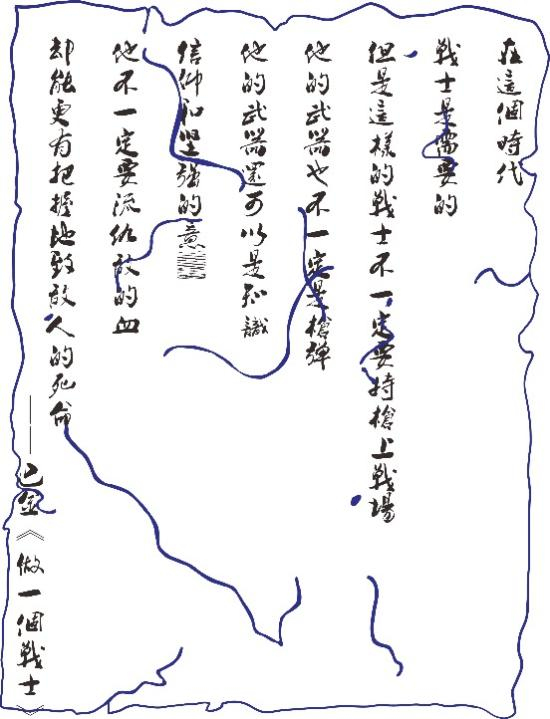 在這個時代
戰士是需要的
但是這樣的戰士不一定要持槍上戰場
他的武器也不一定是槍彈
他的武器還可以是知識
信仰和坚强的意
他不一定要流仇敌的血
却能更有把握地致敌人的死命
——巴金《做一個戰士》